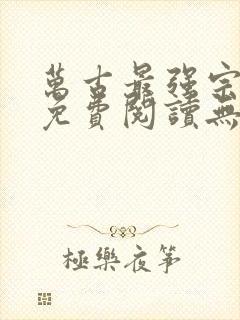 萬古最強宗
免費閱讀無
極樂夜箏